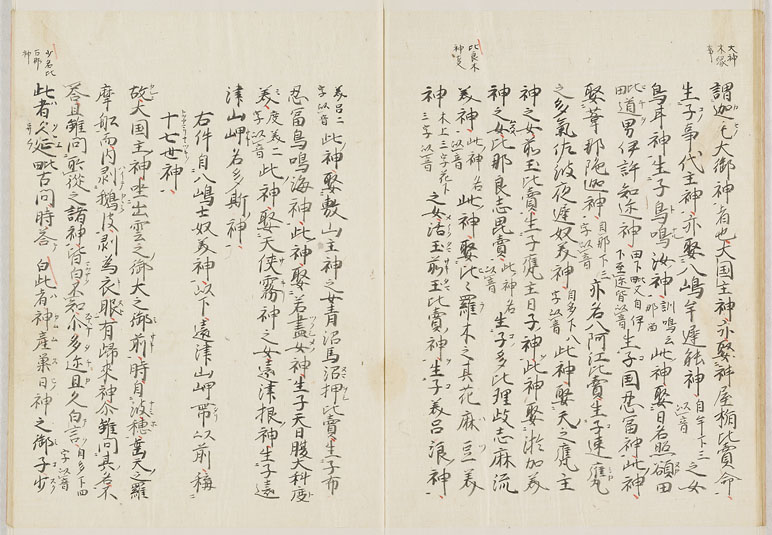 謂迦毛大御神者也大国主神亦娶神屋楯比賣命
生子事代主神亦娶八嶋牟遅能神自牟下三字以音之女
鳥耳神生子鳥鳴汝神訓鳴云那留此神娶日名照額田
毗道男伊許知迩神田下毗又自伊下至迩皆以音生子国忍冨神此神
娶葦那陁迦神自那下三字以音亦名八河江比賣生子速甕
之多氣佐波夜遅奴美神自多下八字以音此神娶天之甕主
神之女前玉比賣生子甕主日子神此神娶淤加美
神之女比那良志毗賣此神名以音生子多比理岐志麻流
美神此神名以音此神娶比々羅木之其花麻豆美
神木上三字花下三字以音之女活玉前玉比賣神生子美呂浪神
美呂二字以音此神娶敷山主神之女青沼馬沼押比賣生子布
忍冨鳥鳴海神此神娶若盡女神生子天日腹大科度
美神度美二字以音此神娶天侠霧神之女遠津根神生子遠
津山岬名多斯神
右件自八嶋士奴美神以下遠津山岬帶以前稱
十七世神
故大国主神坐出雲之御大之御前時自波穂乗天之羅
摩船而内剥鵝皮剥為衣服有歸来神尒雖問其名不
荅且雖問所從之諸神皆白不知尒多迩且久白言自多下四字以音
此者久延毗古問時荅白此者神産巣日神之御子少
比良木神是
少名比古那神